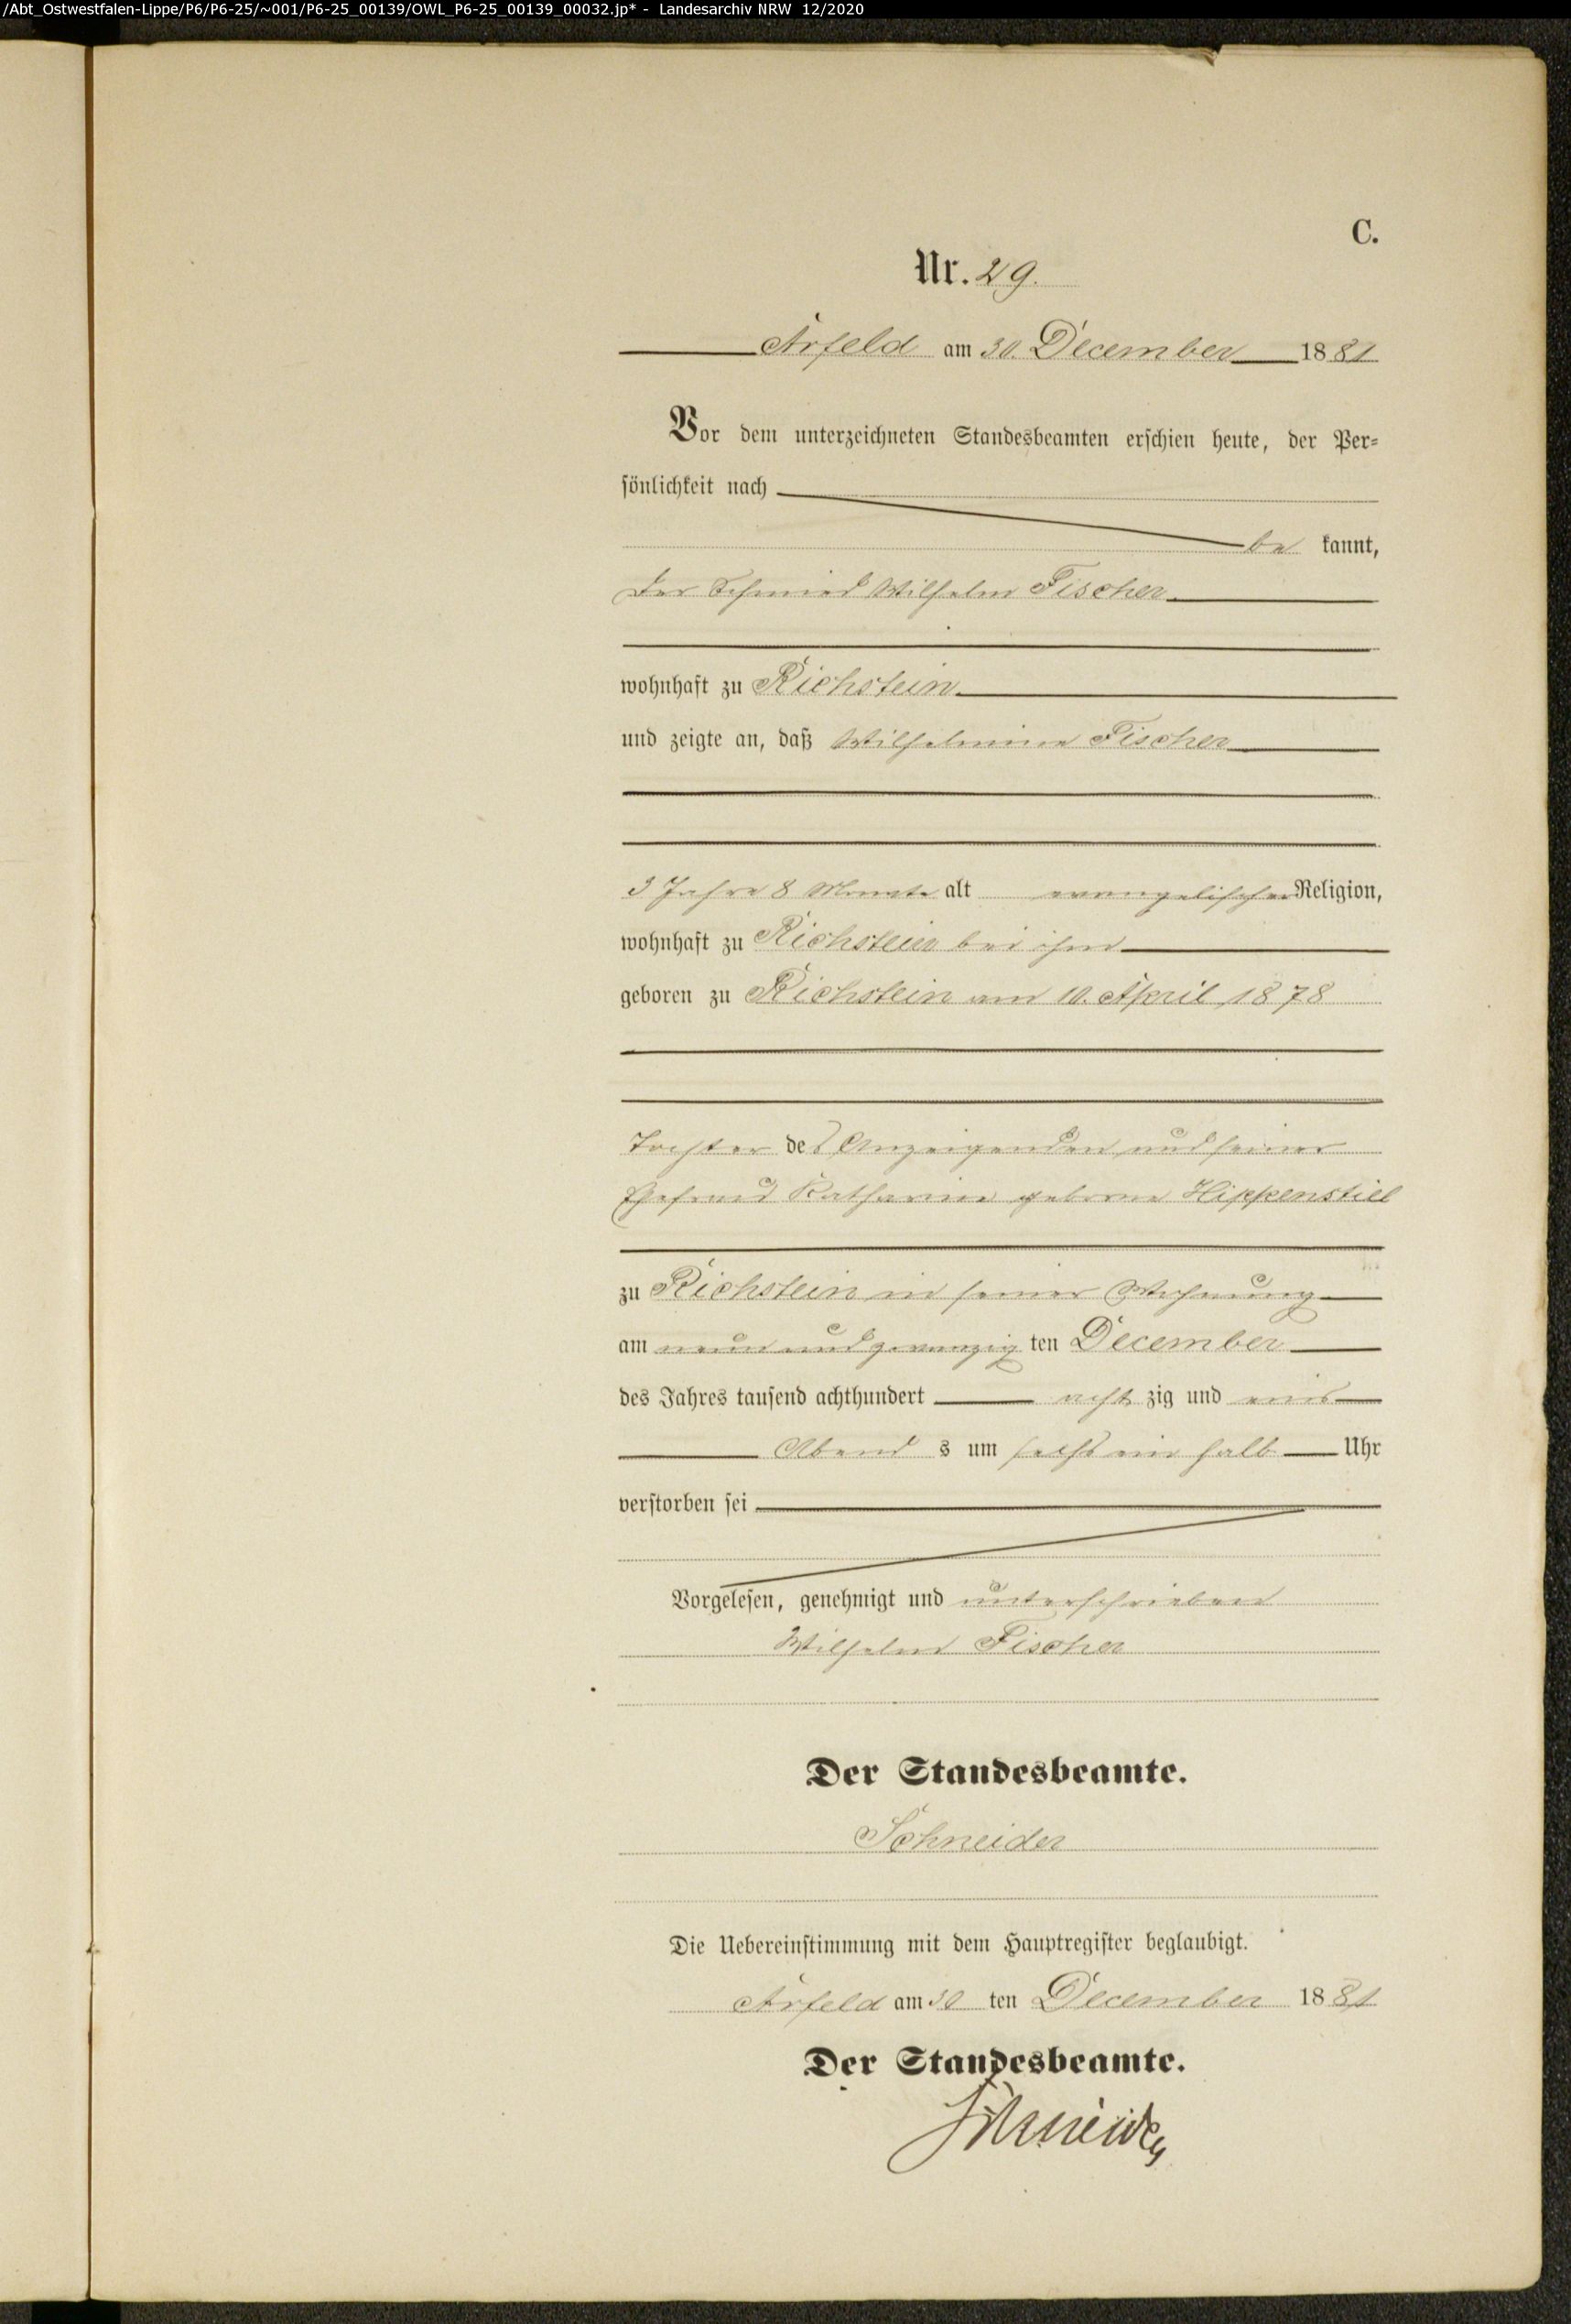 /Abt_Ostwestfalen-Lippe/P6/P6-25/~001/P6-25_00139/OWL_P6-25_00139_00032.jp* - Landesarchiv NRW 12/2020
C.
Nr. 29.
Arfeld am 30. December 1881
Vor dem unterzeichneten Standesbeamten erschien heute, der Per-
sönlichkeit nach
be kannt,
der Schmied Wilhelm Fischer
wohnhaft zu Richstein
und zeigte an, daß Wilhelmine Fischer
3 Jahre 8 Monate alt evangelischer Religion,
wohnhaft zu Richstein bei ihm
geboren zu Richstein am 10. April 1878
Tochter des Anzeigenden und seiner
Ehefraud Katharine geborne Hippenstiel
zu Richstein in seiner Wohnung
am neun und zwanzig ten December
des Jahres tausend achthundert acht zig und eins
Abend s um sechs ein halb Uhr
verstorben sei
Vorgelesen, genehmigt und unterschrieben
Wilhelm Fischer
Der Standesbeamte.
Schneider
Die Uebereinstimmung mit dem Hauptregister beglaubigt.
Arfeld am 30 ten December 1881
Der Standesbeamte.
Schneider